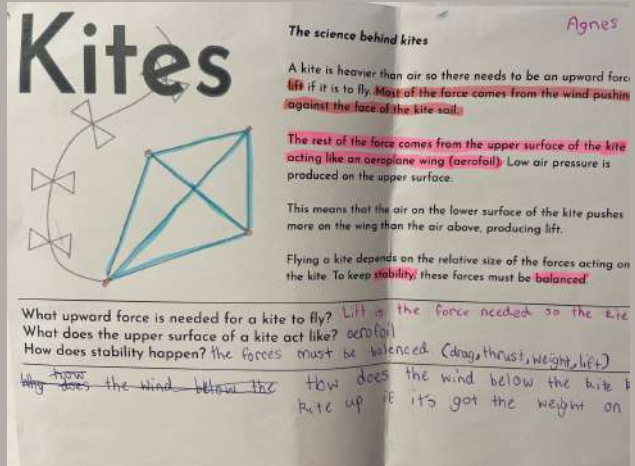 Kites
Agnes
The science behind kites
A kite is heavier than air so there needs to be an upward forc
lift if it is to fly. Most of the force comes from the wind pushin
against the face of the kite sail.
The rest of the force comes from the upper surface of the kite
acting like an aeroplane wing (aerofoil). Low air pressure is
produced on the upper surface.
This means that the air on the lower surface of the kite pushes
more on the wing than the air above, producing lift.
Flying a kite depends on the relative size of the forces acting on
the kite. To keep stability, these forces must be balanced
What upward force is needed for a kite to fly? Lift is the force needed so the kite
What does the upper surface of a kite act like? aerofoil
How does stability happen? the forces must be balenced (drag, thrust, weight, lift)
Why how does the wind below the
How does the wind below the kite k
kite up if it's got the weight on